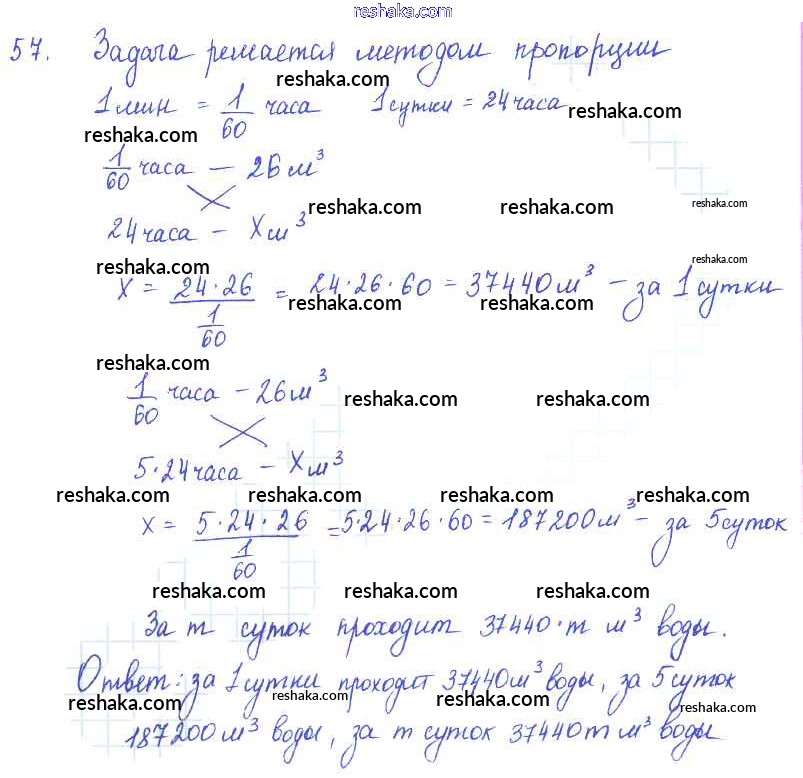 reshaka.com
57. Задача решается методом пропорции
reshaka.com
1 мин = 1/60 часа 1 сутки = 24 часа reshaka.com
reshaka.com
1/60 часа — 26 м³
reshaka.com
reshaka.com reshaka.com
24 часа — X м³
reshaka.com
reshaka.com
X = 24·26 / 1/60 = 24·26·60 = 37440 м³ — за 1 сутки
reshaka.com reshaka.com
reshaka.com
1/60 часа — 26 м³
reshaka.com reshaka.com
5·24 часа — X м³
reshaka.com reshaka.com reshaka.com reshaka.com
X = 5·24·26 / 1/60 = 5·24·26·60 = 187200 м³ — за 5 суток
reshaka.com reshaka.com reshaka.com
За m суток проходит 37440·m м³ воды.
reshaka.com reshaka.com
Ответ: за 1 сутки проходит 37440 м³ воды, за 5 суток
reshaka.com reshaka.com reshaka.com
187200 м³ воды, за m суток 37440m м³ воды